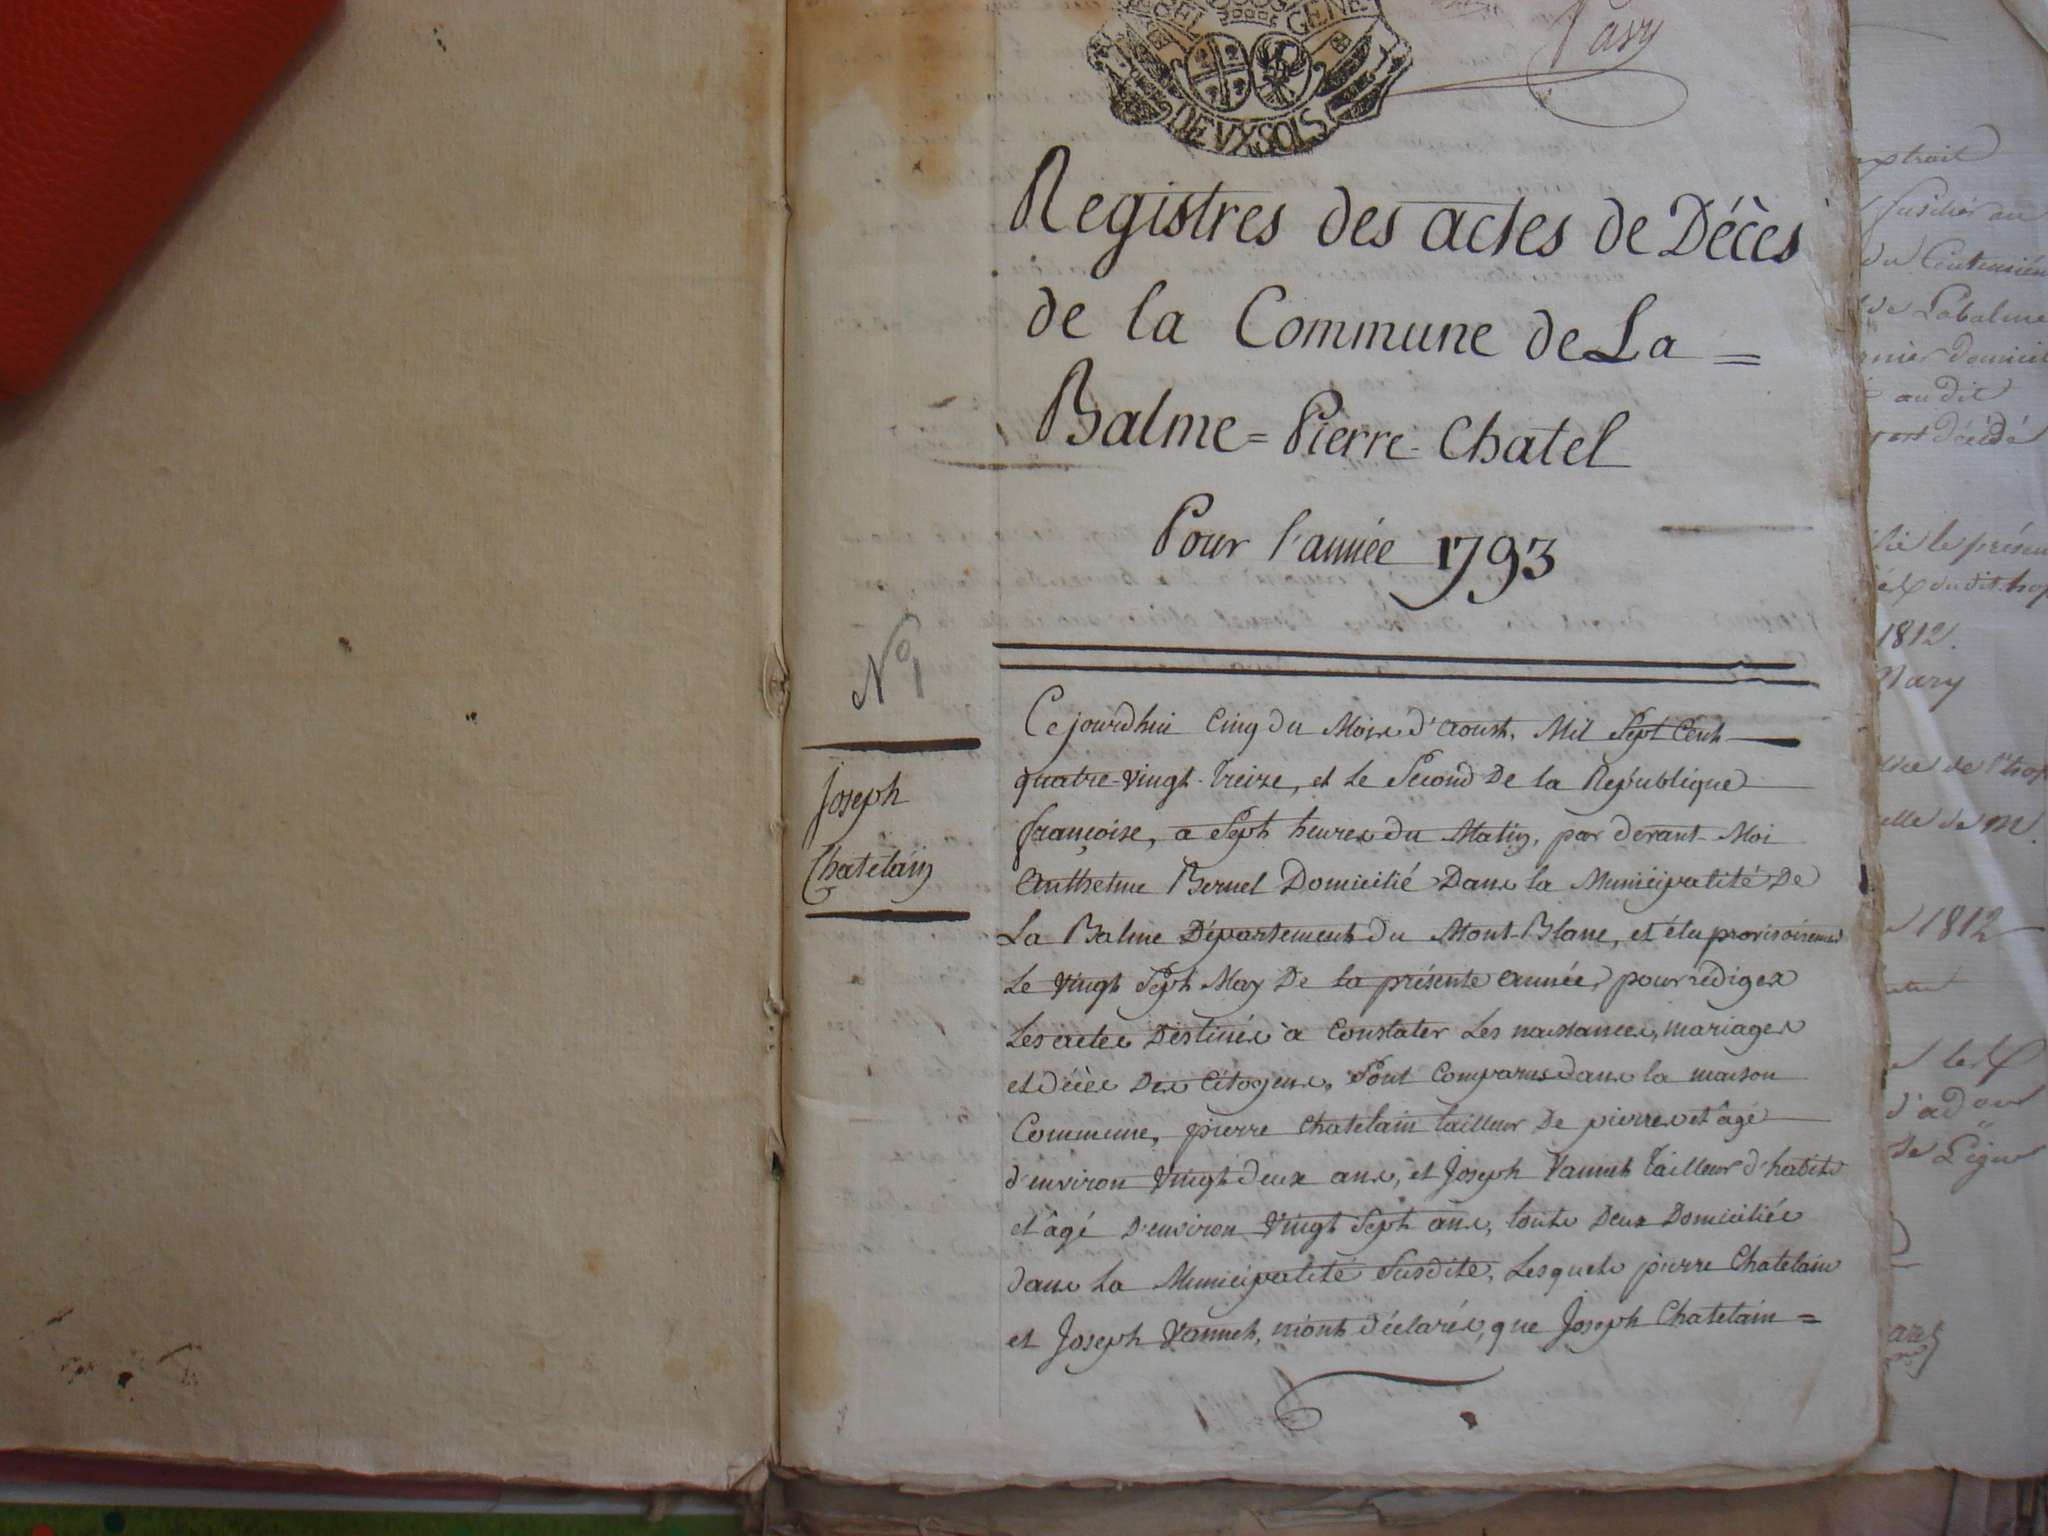 GENE
DEVX SOLS
Registres des actes de Décès
de la Commune de La =
Balme = Pierre-Chatel
Pour l'année 1793
N° 1
Joseph
Chatelain
Ce jourd'hui Cinq du Mois d'Aoust, Mil Sept Cent
quatre-vingt-treize, et le Second De la République
françoise, a Sept heures du Matin, par devant Moi
Anthelme Bernel Domicilié Dans la Municipalité De
La Balme Département du Mont-Blanc, et élu provisoirement
Le Vingt Sept May De la présente année, pour rédiger
Les actes Destinés a Constater Les naissances, mariages
et décès Des Citoyens, Sont Comparus dans la maison
Commune, pierre Chatelain tailleur De pierres et âgé
d'environ Vingt deux ans, et Joseph Vannet Tailleur d'habits
et âgé D'environ Vingt Sept ans, touts Deux Domiciliés
dans La Municipalité Susdite, Lesquels pierre Chatelain
et Joseph Vannet, m'ont déclarés, que Joseph Chatelain =
extrait
Fusilier au
du Centenier
de Labalme
audit
est décédé
le présen
dudit hop
1812.
1812